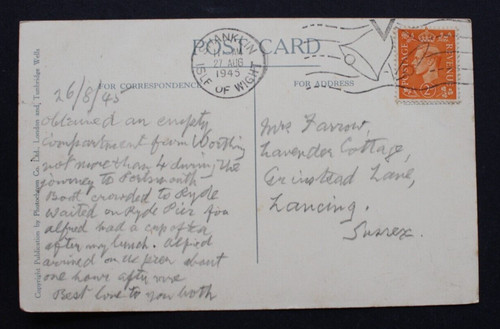 POST CARD
SHANKLIN
27 AUG
1945
ISLE OF WIGHT
POSTAGE REVENUE
FOR CORRESPONDENCE
FOR ADDRESS
Copyright Publication by Photochrom Co. Ltd., London and Tunbridge Wells
26/8/45
obtained an empty
compartment from Worthing
not more than 4 during the
journey to Portsmouth
Boat crowded to Ryde
waited on Ryde Pier for
alfred had a cup of tea
after my lunch. Alfred
arrived on the pier about
one hour after me
Best love to you both
Mrs Farrow,
Lavender Cottage,
Grinstead Lane,
Lancing.
Sussex.